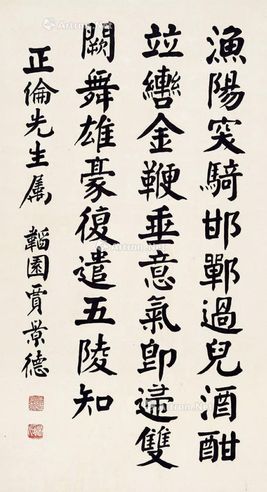 漁陽突騎邯鄲過兒酒酣
竝轡金鞭垂意氣即歸雙
闕舞雄豪復遣五陵知
正倫先生屬 韜園賈景德